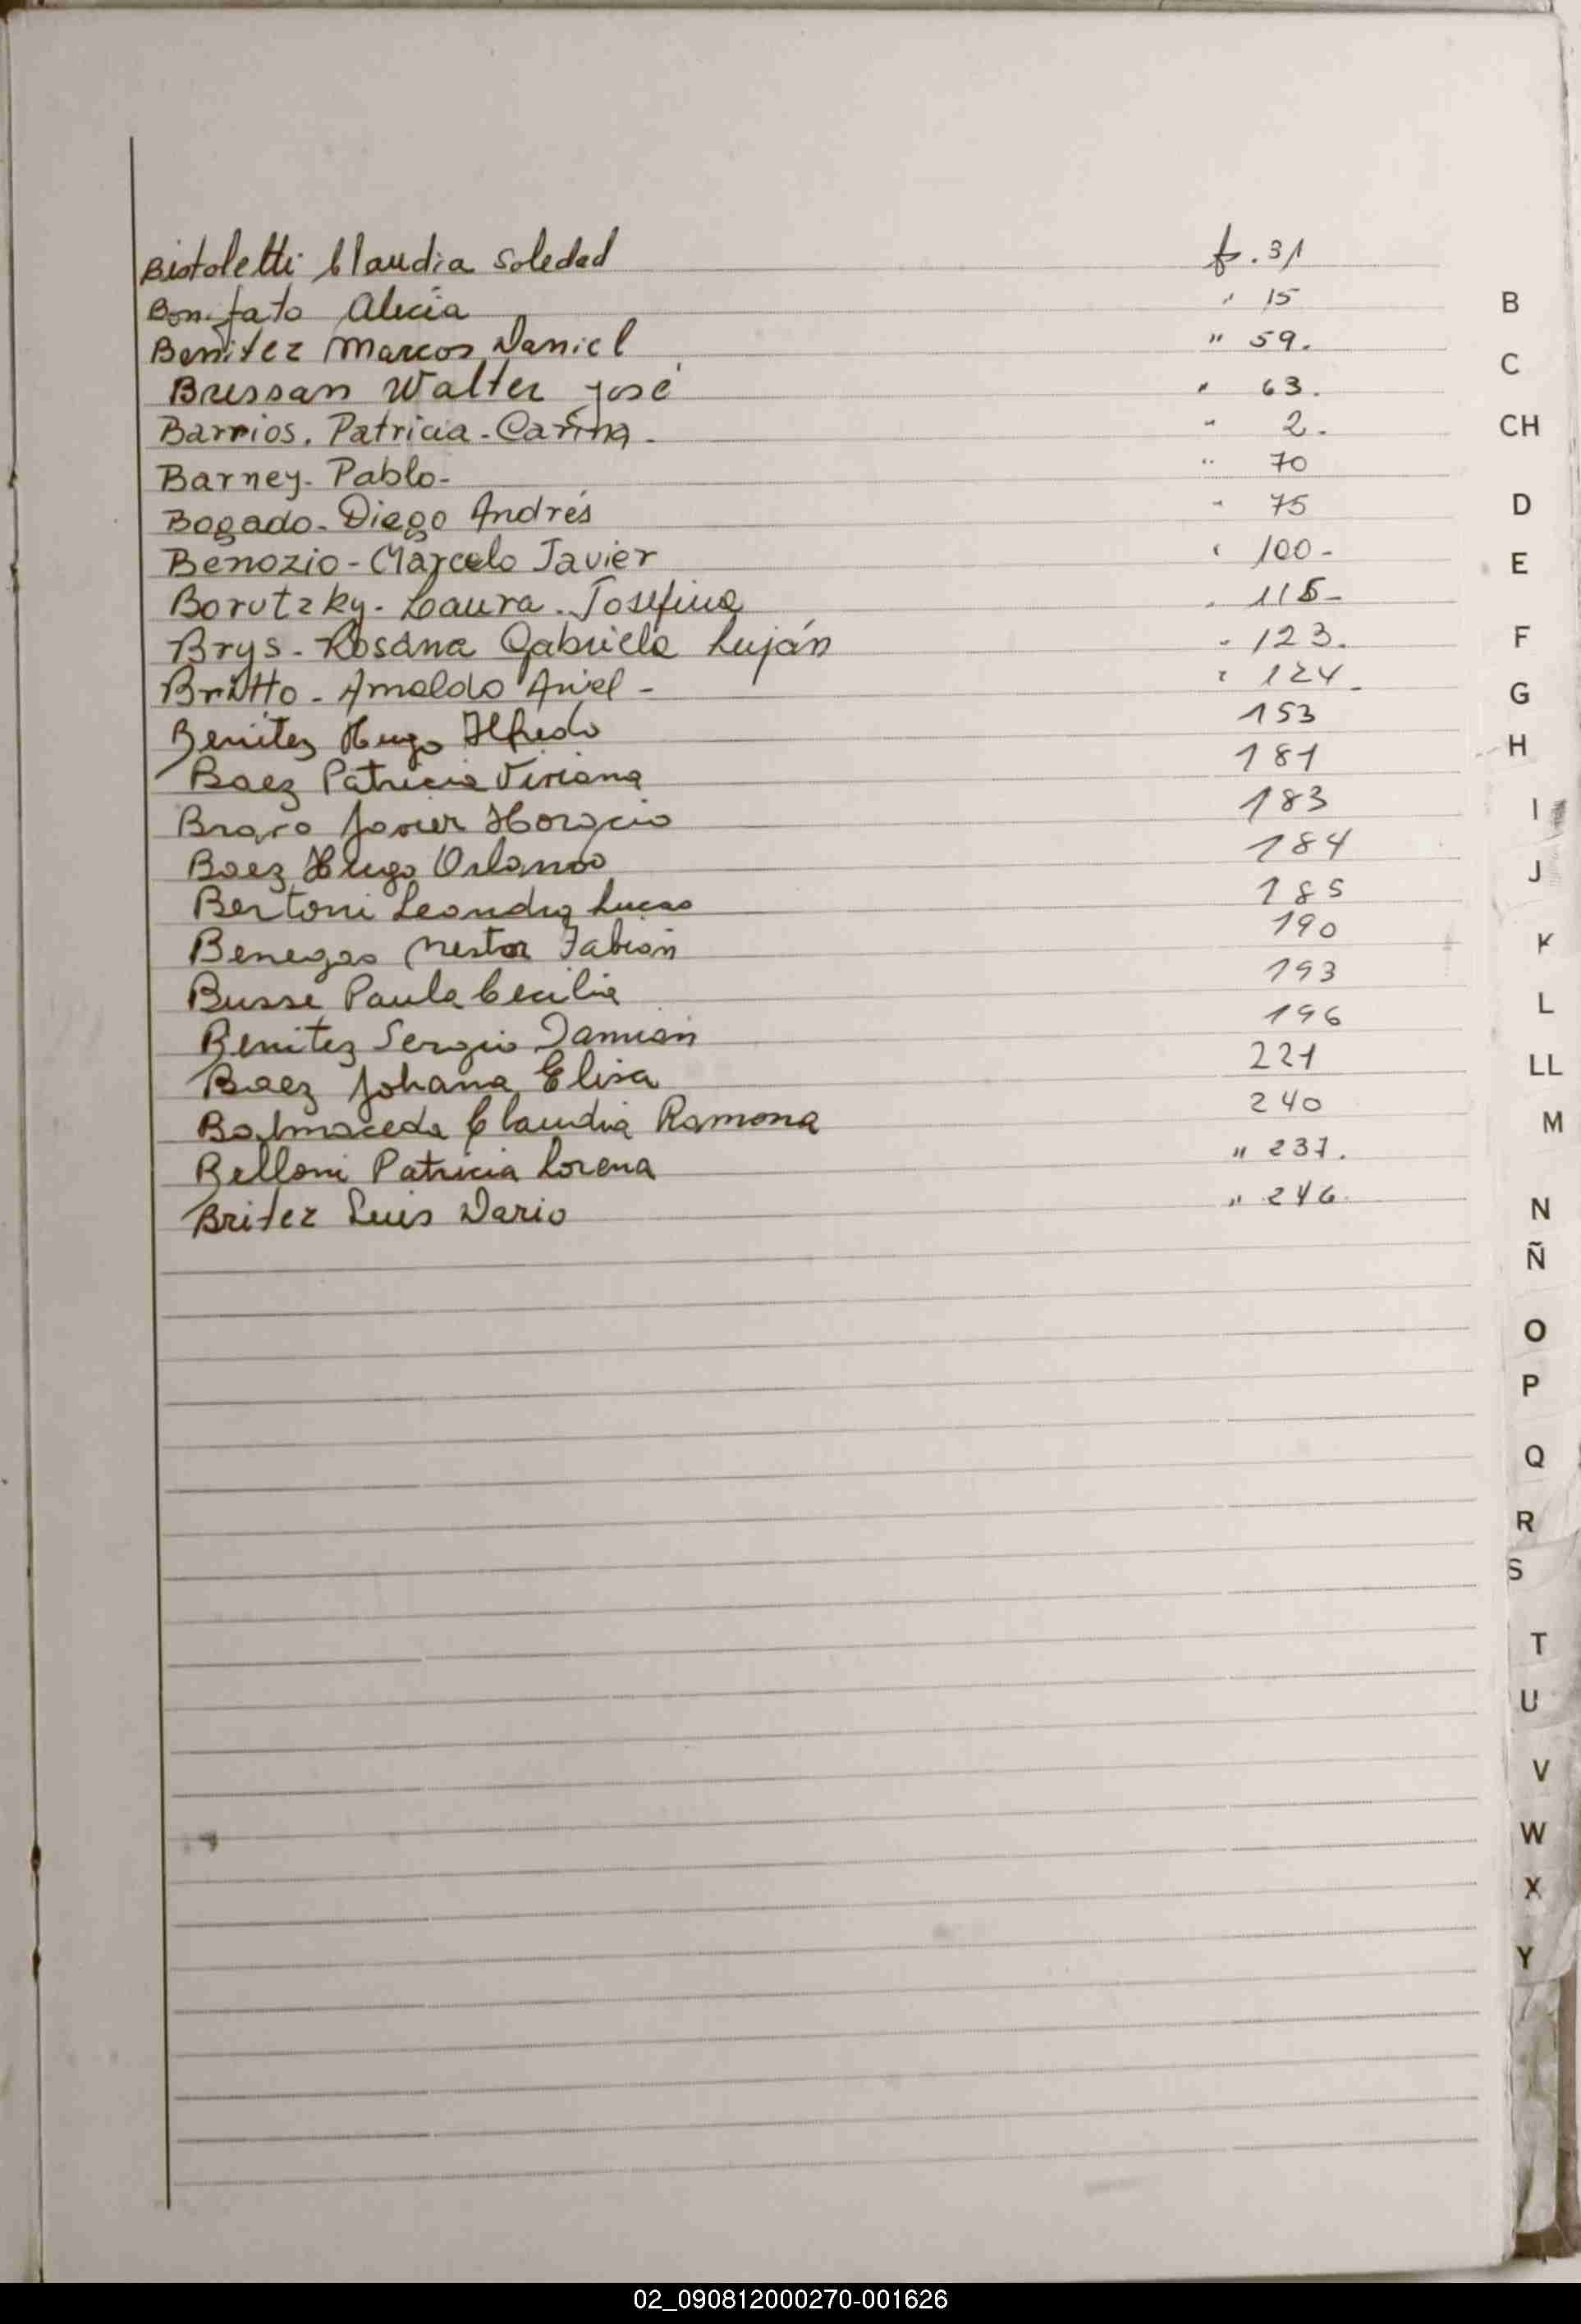 Bistoletti Claudia Soledad f. 31
Bonifato Alicia " 15
Benitez Marcos Daniel " 59.
Bressan Walter José " 63.
Barrios. Patricia - Carina. " 2.
Barney - Pablo - " 70
Bogado - Diego Andrés " 75
Benozio - Marcelo Javier " 100 -
Borutzky - Laura - Josefina " 115 -
Brys - Rosana Gabriela Luján " 123.
Britto - Arnaldo Ariel - " 124.
Benitez Hugo Alfredo 153
Baez Patricia Viviana 181
Bravo Javier Horacio 183
Baez Hugo Orlando 184
Bertoni Leandro Lucas 185
Benegas Nestor Fabian 190
Busse Paula Cecilia 193
Benitez Sergio Damian 196
Baez Johana Elisa 221
Balmaceda Claudia Ramona 240
Belloni Patricia Lorena " 237.
Britez Luis Dario " 246.
B
C
CH
D
E
F
G
H
I
J
K
L
LL
M
N
Ñ
O
P
Q
R
S
T
U
V
W
X
Y
02_090812000270-001626